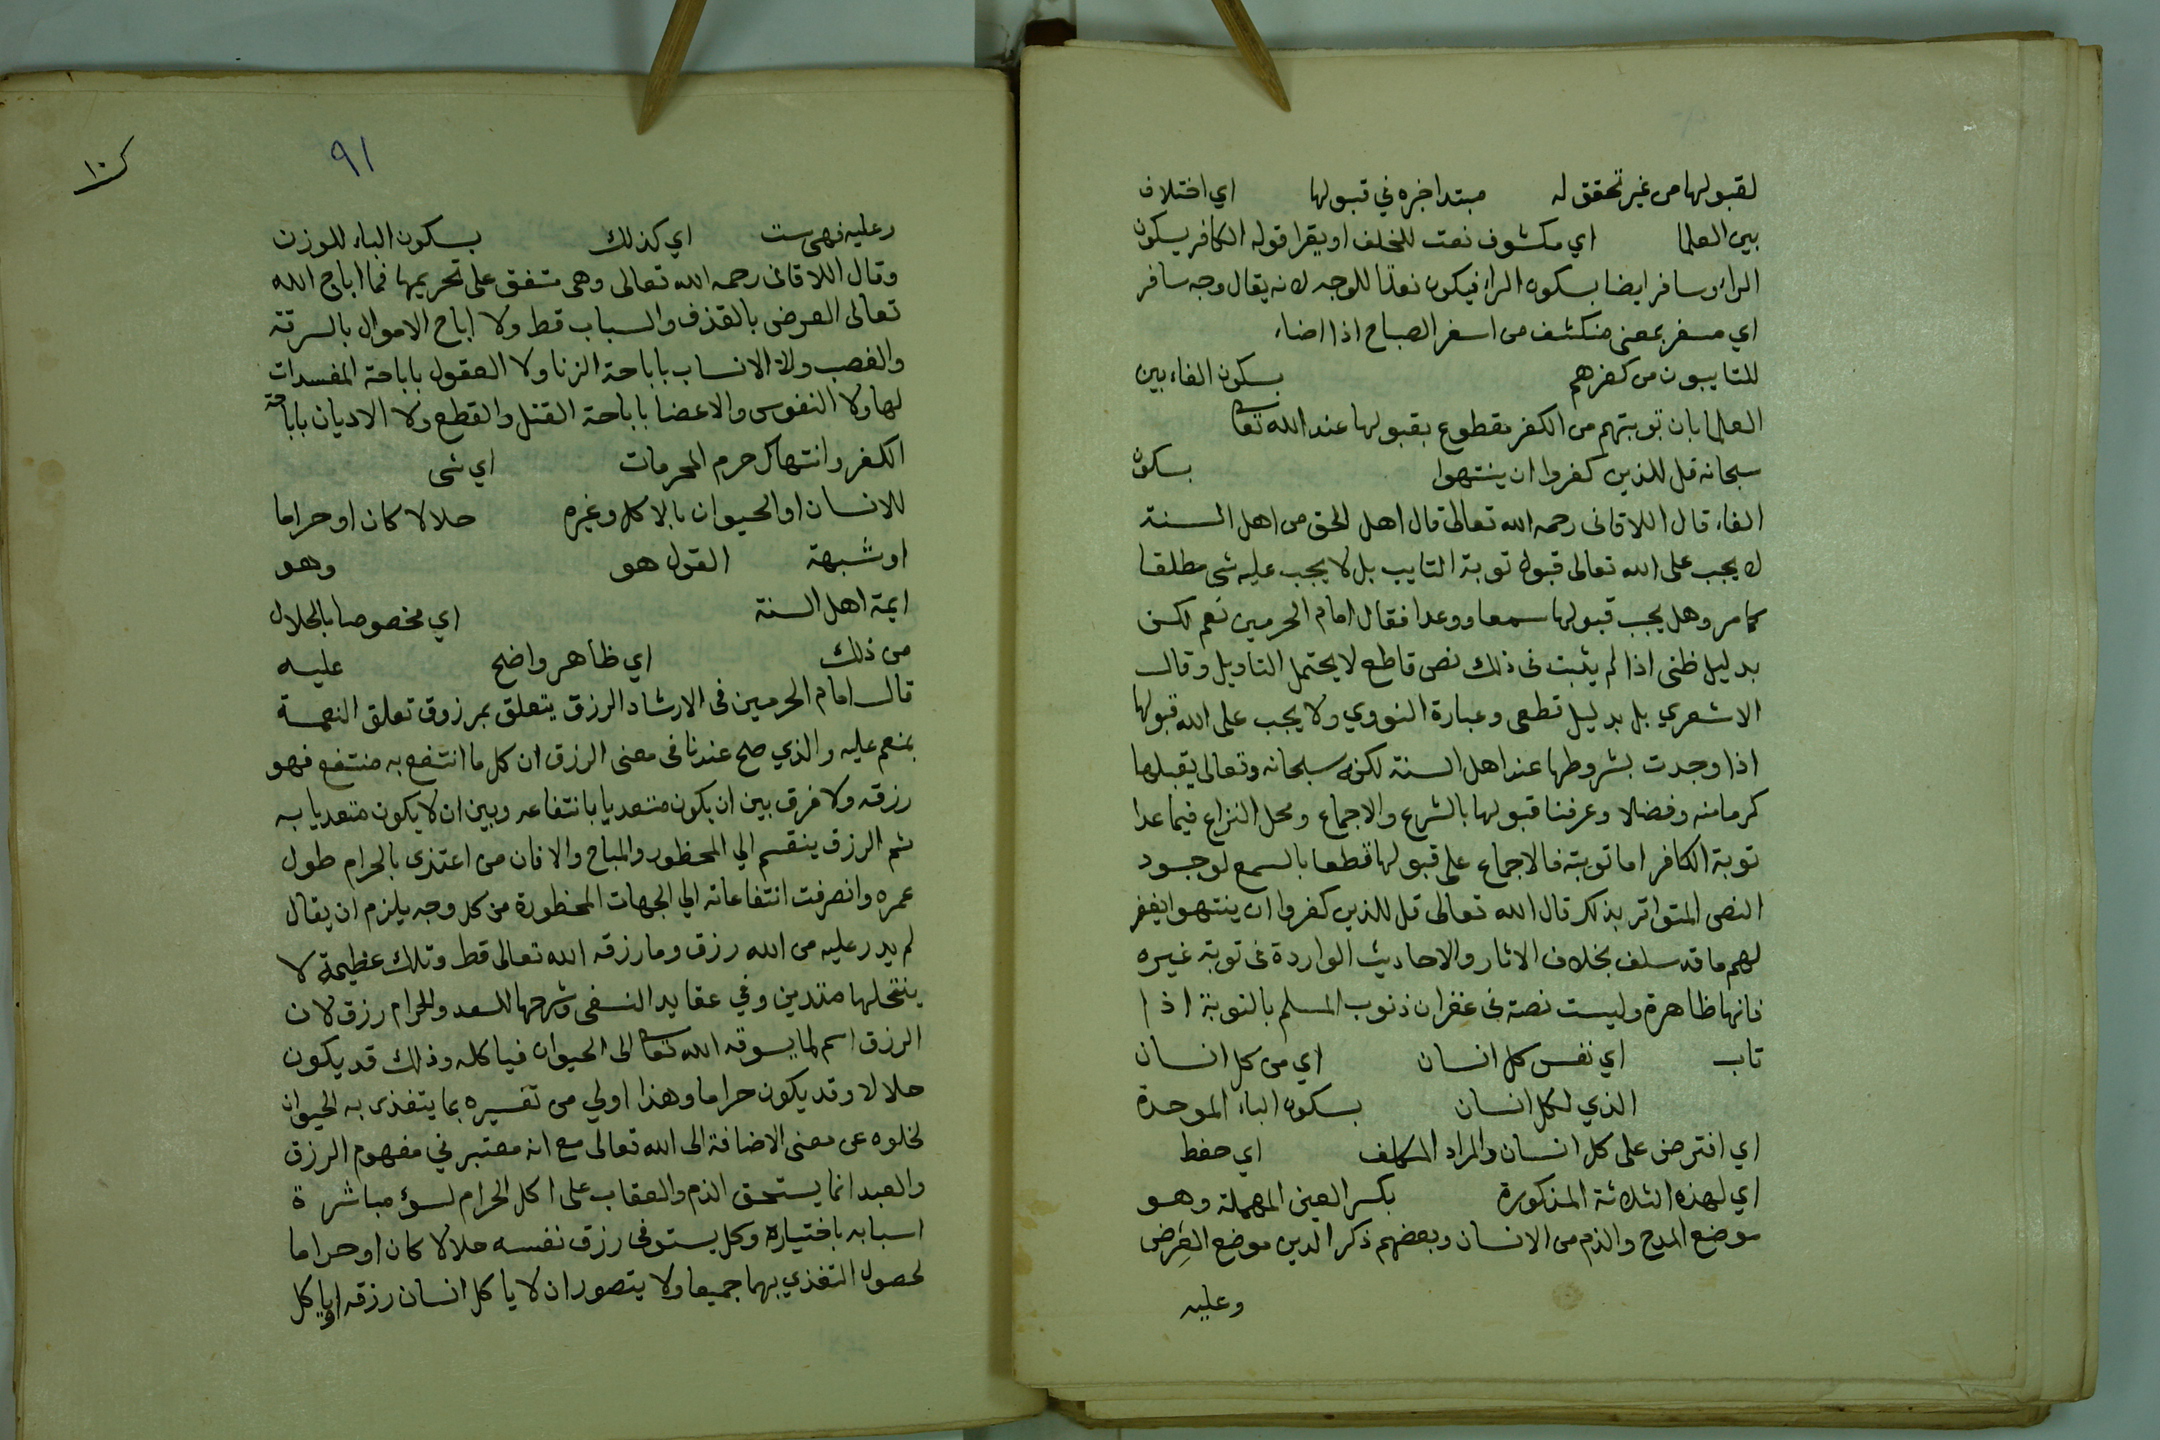 لقبولها من غير تحقق له مبتدا خبره في قبولها اي اختلاف
بين العلما اي مكشوف نعت للخلف او يقرا قوله الكافر بسكون
الراء وسافر ايضا بسكون الراء فيكون نعتا للوجه لانه يقال وجه سافر
اي مسفر بمعنى منكشف من اسفر الصباح اذا اضاء
للتايبون من كفرهم بسكون الفاء بين
العلما بان توبتهم من الكفر مقطوع بقبولها عند الله تعا
سبحانه قل للذين كفروا ان ينتهوا بسكون
الفاء قال اللاقانى رحمه الله تعالى قال اهل الحق من اهل السنة
لا يجب على الله تعالى قبول توبة التايب بل لا يجب عليه شى مطلقا
كما مر وهل يجب قبولها سمعا ووعدا فقال امام الحرمين نعم لكن
بدليل ظنى اذا لم يثبت فى ذلك نص قاطع لا يحتمل التاويل وقال
الاشعري بل بدليل قطعى وعبارة النووي ولا يجب على الله قبولها
اذا وجدت بشروطها عند اهل السنة لكنه سبحانه وتعالى يقبلها
كرما منه وفضلا وعرفنا قبولها بالشرع والاجماع ومحل النزاع فيما عدا
توبة الكافر اما توبته فالاجماع على قبولها قطعا بالسمع لوجود
النص المتواتر بذلك قال الله تعالى قل للذين كفروا ان ينتهوا يغفر
لهم ما قد سلف بخلاف الاثار والاحاديث الواردة فى توبة غيره
فانها ظاهرة وليست نصة فى غفران ذنوب المسلم بالتوبة اذا
تاب اي نفس كل انسان اي من كل انسان
الذي لكل انسان بسكون الباء الموحدة
اي افترض على كل انسان والمراد المكلف اي حفظ
اي لهذه الثلاثة المذكورة بكسر العين المهملة وهو
موضع المدح والذم من الانسان وبعضهم ذكر الدين موضع العِرض
وعليه
٩١
١٠
وعليه فهى ست اي كذلك بسكون الباء للوزن
وقال اللاقانى رحمه الله تعالى وهى متفق على تحريمها فما اباح الله
تعالى العرض بالقذف والسباب قط ولا اباح الاموال بالسرقة
والغصب ولا الانساب باباحة الزنا ولا العقول باباحة المفسدات
لها ولا النفوس والاعضا باباحة القتل والقطع ولا الاديان باباحة
الكفر وانتهاك حرم المحرمات اي شى
للانسان او الحيوان بالاكل وغيره حلالا كان او حراما
او شبهة القول هو وهو
ايمة اهل السنة اي مخصوصا بالحلال
من ذلك اي ظاهر واضح عليه
قال امام الحرمين فى الارشاد الرزق يتعلق بمرزوق تعلق النعمة
بمنعم عليه والذي صح عندنا فى معنى الرزق ان كل ما انتفع به منتفع فهو
رزقه ولا فرق بين ان يكون متعديا بانتفاعه وبين ان لا يكون متعديا به
ثم الرزق ينقسم الي المحظور والمباح والا فان من اغتذى بالحرام طول
عمره وانصرفت انتفاعاته الي الجهات المحظورة من كل وجه يلزم ان يقال
لم يدر عليه من الله رزق وما رزقه الله تعالى قط وتلك عظيمة لا
ينتحلها متدين وفي عقايد النسفى وشرحها للسعد والحرام رزق لان
الرزق اسم لما يسوقه الله تعا الى الحيوان فياكله وذلك قد يكون
حلالا وقد يكون حراما وهذا اولي من تفسيره بما يتغذى به الحيوان
لخلوه عن معنى الاضافة الى الله تعالى مع انه معتبر في مفهوم الرزق
والعبد انما يستحق الذم والعقاب على اكل الحرام لسؤ مباشرة
اسبابه باختياره وكل يستوفى رزق نفسه حلالا كان او حراما
لحصول التغذي بهما جميعا ولا يتصور ان لا ياكل انسان رزقه او ياكل